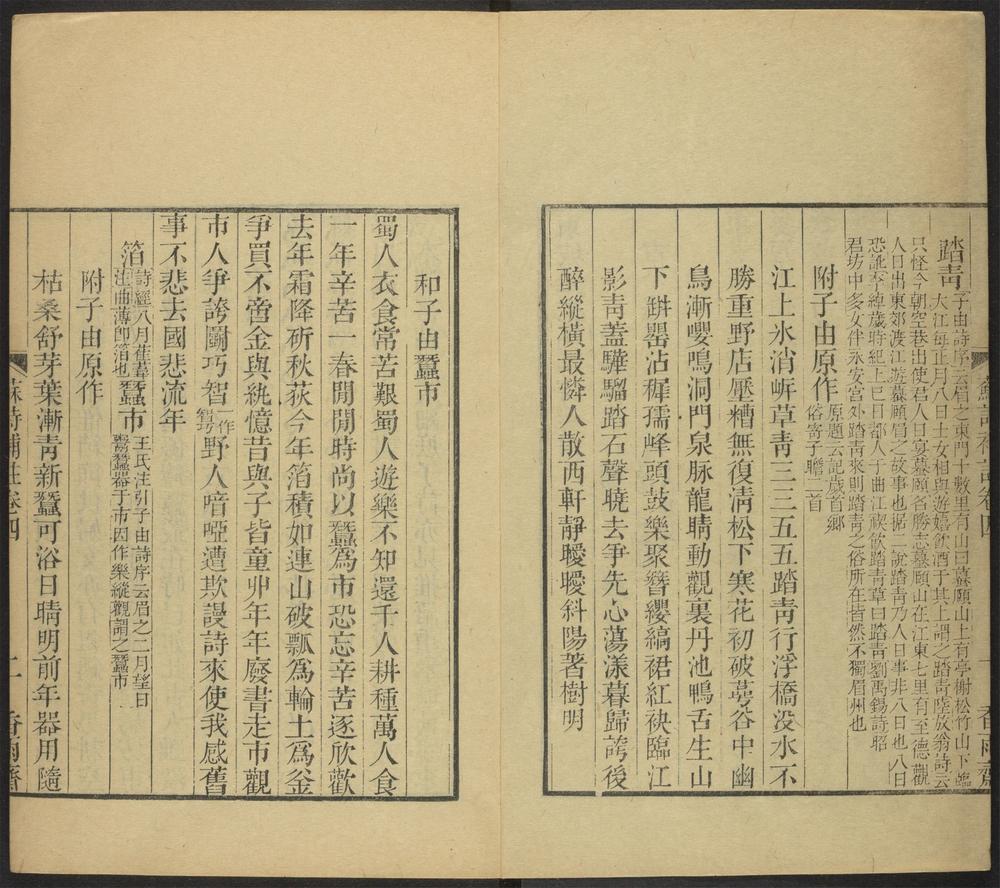 踏靑子由詩序云眉之東門十數里有山曰蟇頤山上有亭榭松竹山下臨
大江每正月八日士女相與遊嬉飲酒于其上謂之踏靑陸放翁詩云
只怪今朝空巷出使君人日宴蟇頤名勝志蟇頤山在江東七里有至德觀
人日出東郊渡江遊蟇頤眉之故事也據二說踏靑乃人日事非八日也八日
恐訛今綽歲時紀上巳日都人于曲江禊飲踏靑草曰踏靑劉禹錫詩昭
君坊中多女伴永安宫外踏靑來則踏靑之俗所在皆然不獨眉州也
附子由原作原題云記歲首鄉
俗寄子瞻二首
江上氷消岍草靑三三五五踏靑行浮橋没水不
勝重野店壓糟無復淸松下寒花初破蕚谷中幽
鳥漸嚶鳴洞門泉脉龍睛動觀裏丹池鴨舌生山
下缾罌沾稺孺峰頭鼓樂聚簪纓縞裙紅袂臨江
影靑蓋驊騮踏石聲曉去爭先心蕩漾暮歸誇後
醉縱橫最憐人散西軒靜曖曖斜陽著樹明
蘇詩補註卷四
一
香雨齋
和子由蠶市
蜀人衣食常苦艱蜀人遊樂不知還千人耕種萬人食
一年辛苦一春閒閒時尚以蠶為市恐忘辛苦逐欣歡
去年霜降斫秋荻今年箔積如連山破瓢爲輪土爲釜
爭買不啻金與紈憶昔與子皆童丱年年廢書走市觀
市人爭誇鬭巧智一作
智巧野人喑啞遭欺謾詩來使我感舊
事不悲去國悲流年
箔詩經八月萑葦
注曲薄即箔也蠶市王氏注引子由詩序云眉之二月望日
鬻蠶器于市因作樂縱觀謂之蠶市
附子由原作
枯桑舒芽葉漸靑新蠶可浴日晴明前年器用隨
蘇詩補註卷四
二
香雨齋